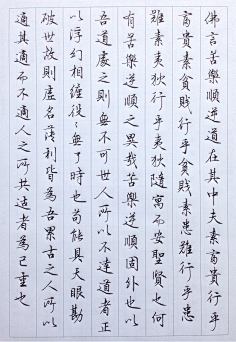 佛言苦樂逆道在其中夫素富貴行乎
富貴素貧賤行乎貧賤素患難行乎患
難素夷狄行乎夷狄隨寓而安聖賢也何
有苦樂逆順之異哉苦樂逆順固外也以
吾道處之則無不可世人所以不達道者正
以浮幻相纏役々無了時也苟能具天眼勘
破世故則虛名薄利皆為吾累古之人所以
適其適而不適人之所共適者為己重也